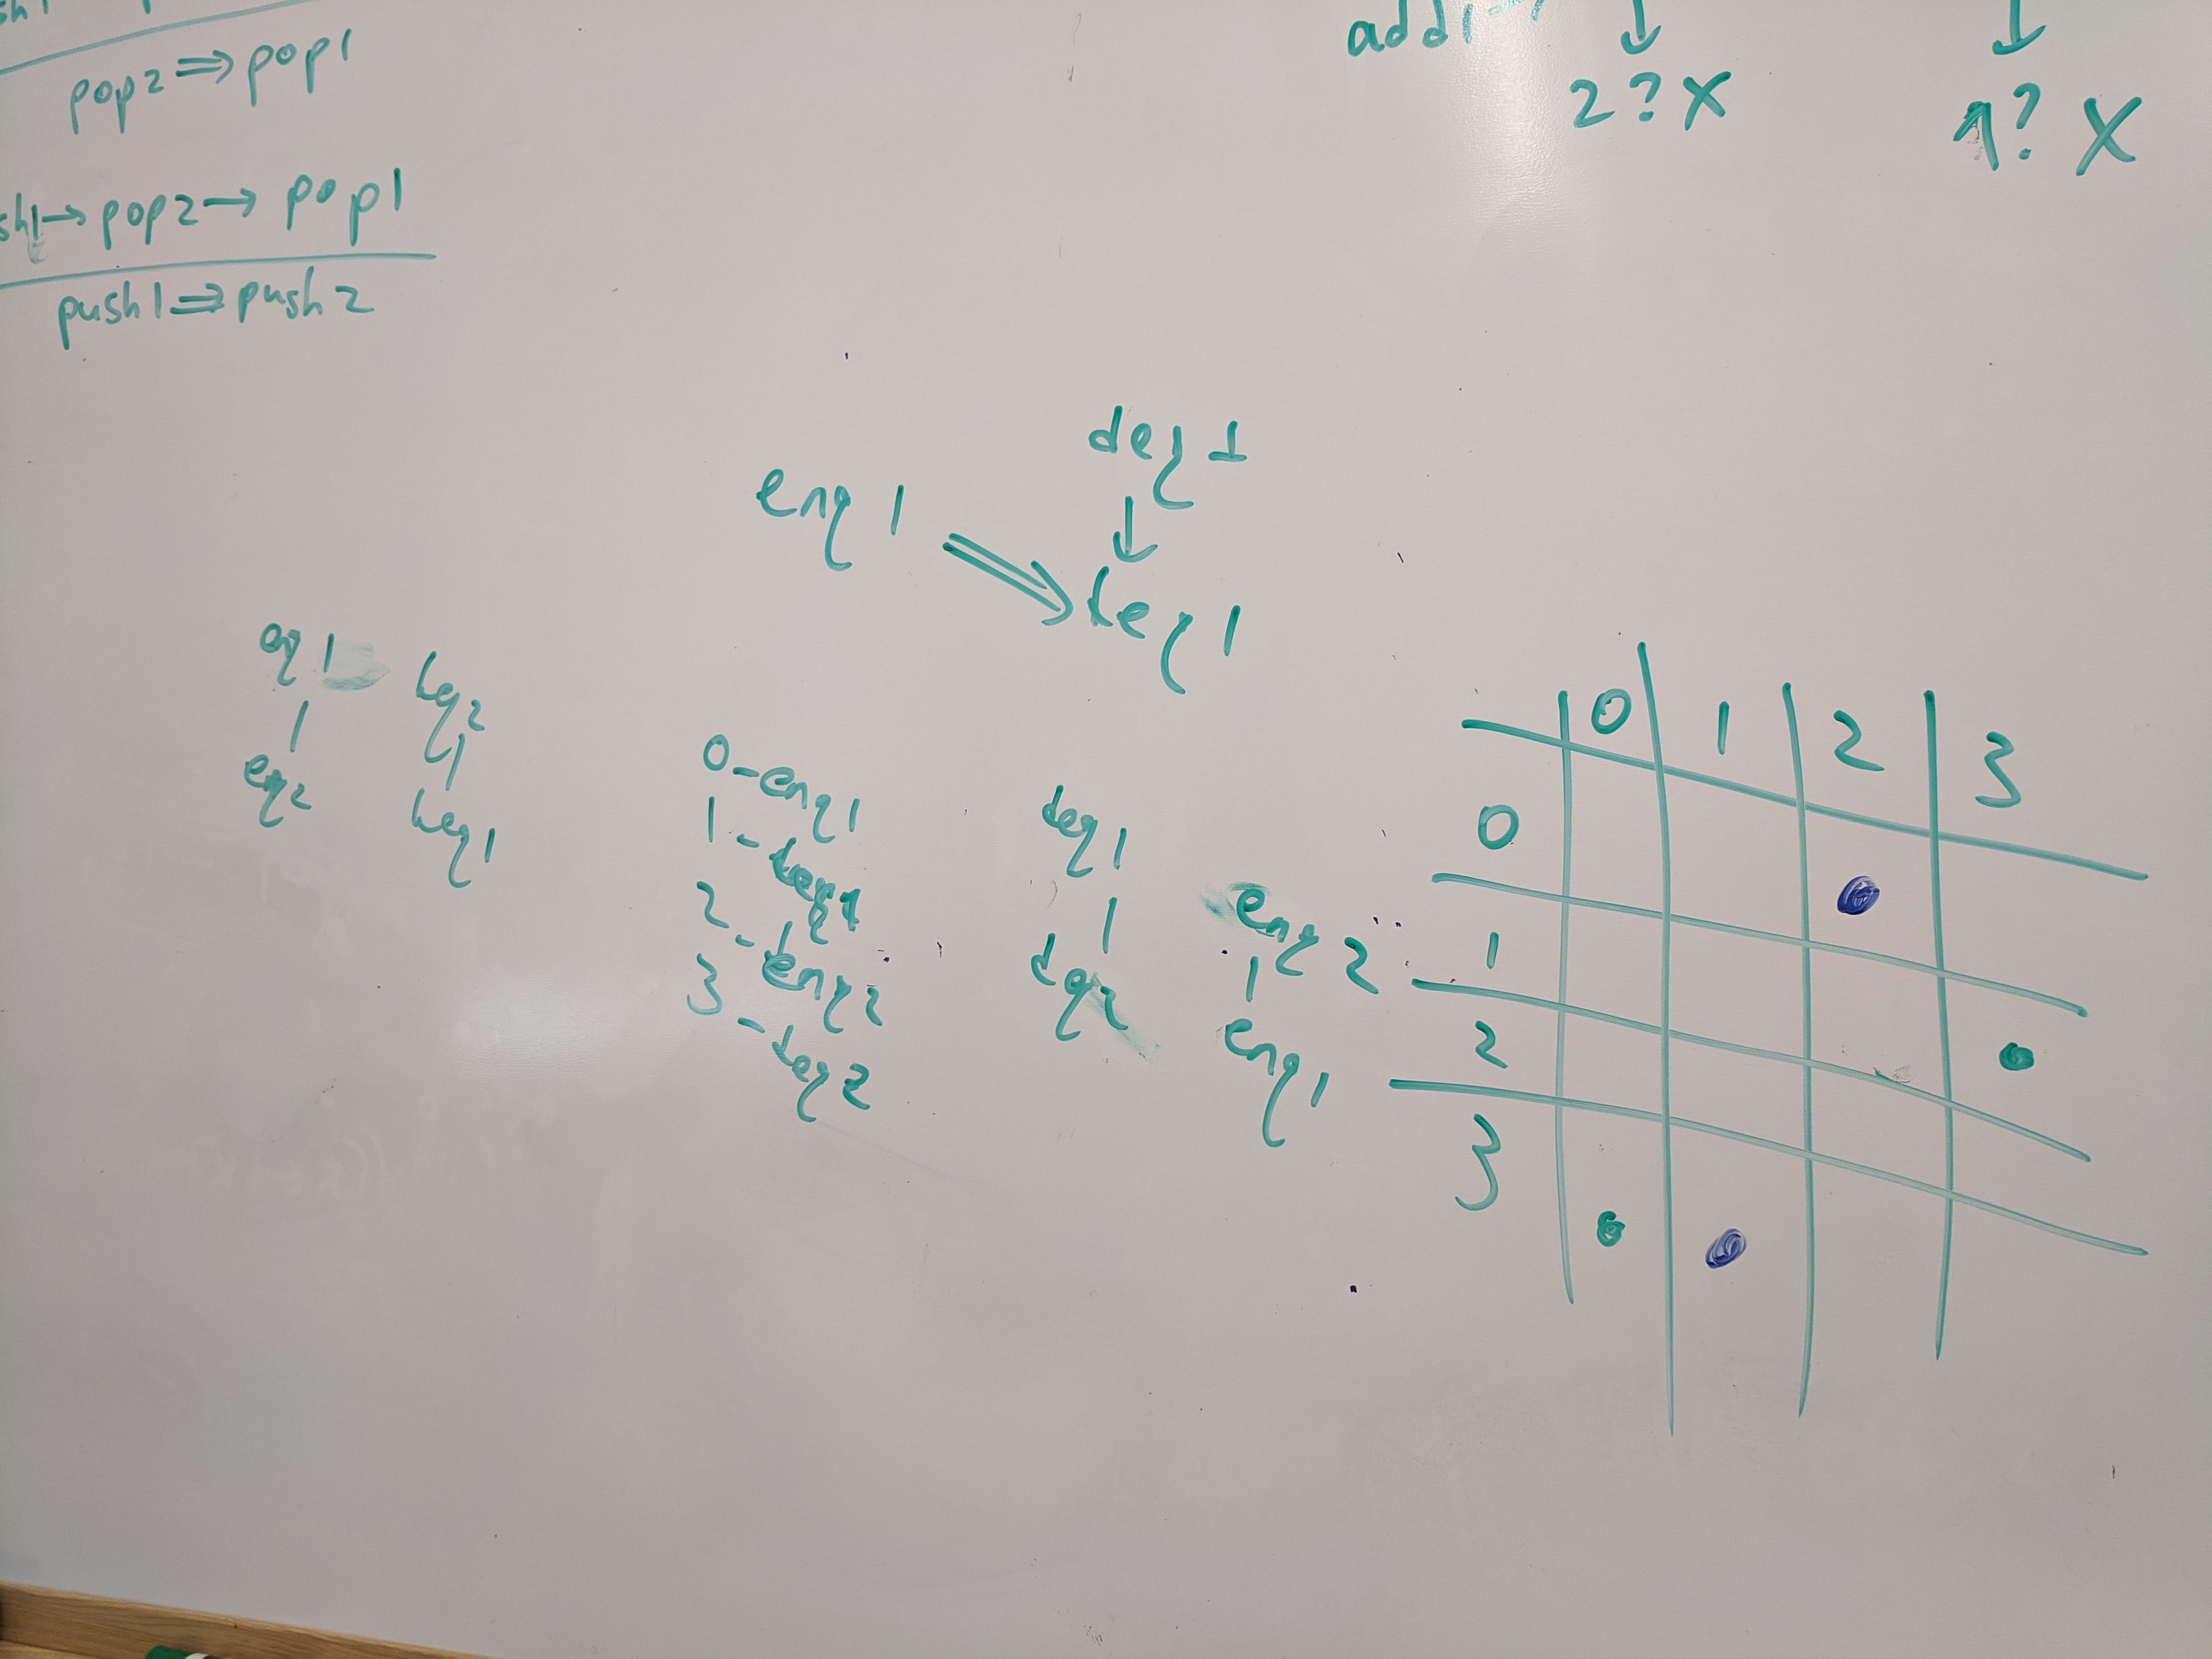 pop2 ⇒ pop1
→ pop2 → pop1
push1 ⇒ push2
add1 →
↓ ↓
2? X 1? X
deq 1
enq 1 ⇒ ↓
deq 1
enq1 deq2
| |
enq2 deq1
0 - enq1
1 - deq1
2 - enq2
3 - deq2
deq1
|
deq2
enq 2
|
enq1
0 1 2 3
0
1
2
3